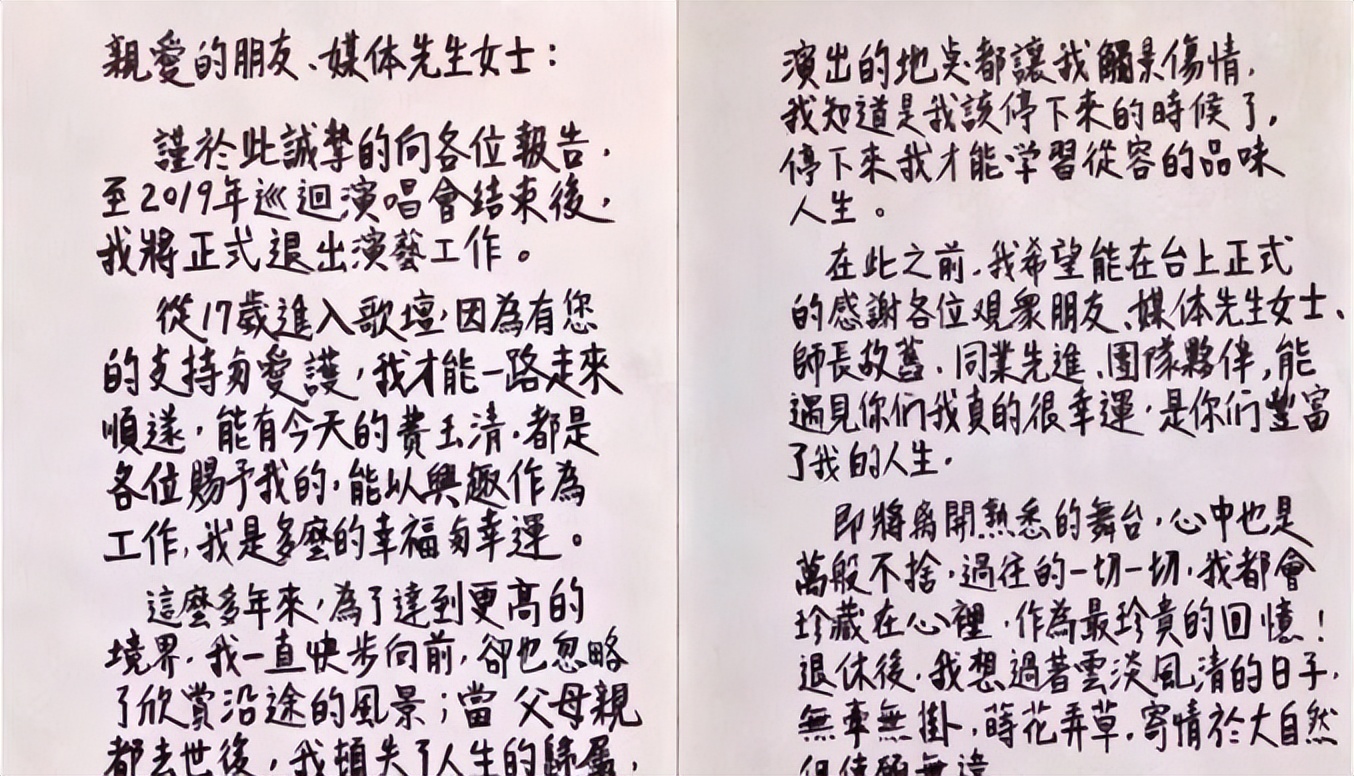 親愛的朋友、媒体先生女士：
謹於此誠摯的向各位報告，
至2019年巡迴演唱會結束後，
我將正式退出演藝工作。
從17歲進入歌壇，因為有您
的支持与愛護，我才能一路走來
順遂，能有今天的費玉清，都是
各位賜予我的，能以興趣作為
工作，我是多麼的幸福与幸運。
這麼多年來，為了達到更高的
境界，我一直快步向前，卻也忽略
了欣賞沿途的風景；當父母親
都去世後，我頓失了人生的歸屬，
演出的地点都讓我觸景傷情，
我知道是我該停下來的時候了，
停下來我才能学習從容的品味
人生。
在此之前，我希望能在台上正式
的感謝各位观眾朋友、媒体先生女士、
師長故舊、同業先進、團隊夥伴，能
遇見你们我真的很幸運，是你们豐富
了我的人生。
即將离開熟悉的舞台，心中也是
萬般不捨，過往的一切一切，我都會
珍藏在心裡，作為最珍貴的回憶！
退休後，我想過著雲淡風清的日子，
無牽無掛，蒔花弄草，寄情於大自然
但使願無違